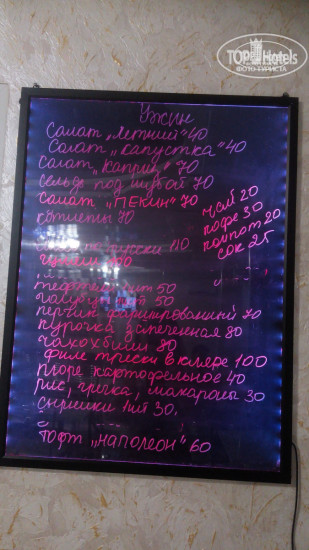 TOPHotels
ФОТО ТУРИСТА
Ужин
Салат „Летний" 40
Салат „Капустка" 40
Салат „Каприз" 70
Сельдь под шубой 70
Салат „ПЕКИН" 70
котлеты 70
110
100
тефтели 1шт 50
голубцы 1шт 50
перчик фаршированный 70
курочка запеченная 80
чахохбили 80
филе трески в кляре 100
пюре картофельное 40
рис, гречка, макароны 30
сырники 1шт 30.
Торт „Наполеон" 60
чай 20
кофе 30
компот 20
сок 25